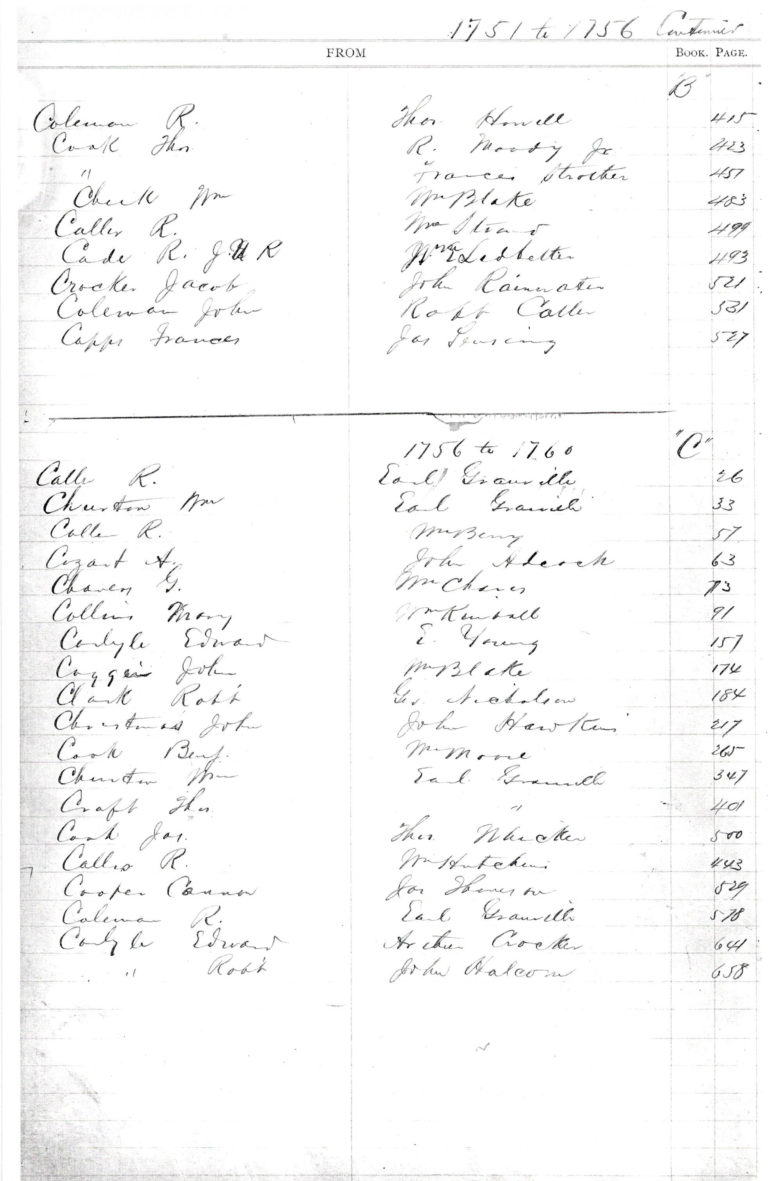 1751 to 1756 Continued
FROM BOOK. PAGE.
"B"
Coleman R. Thos Howell 415
Cook Thos R. Moody Jr 423
" Frances Strother 457
Cheek Wm Wm Blake 483
Caller R. Wm 499
Cade R. J & R Wm E Ledbetter 493
Crocker Jacob John Rainwater 521
Coleman John Robt Caller 531
Capps Frances Jas 527
1756 to 1760 "C"
Caller R. Earl Granville 26
Churton Wm Earl Granville 33
Caller R. Wm Berry 57
Cozart A. John Adcock 63
Chavers G. Wm Chavis 73
Collins Mary Wm Kimball 91
Carlyle Edward E. Young 157
Coggin John Wm Blake 174
Clark Robt Geo Nicholson 184
Christmas John John Hawkins 217
Cook Benj. Wm Moore 265
Churton Wm Earl Granville 347
Craft Thos " 401
Cook Jas. Thos Whicker 500
Caller R. Wm Hutchins 443
Cooper Cannon Jas 529
Coleman R. Earl Granville 578
Carlyle Edward Arthur Crocker 641
" Robt John Halcom 658